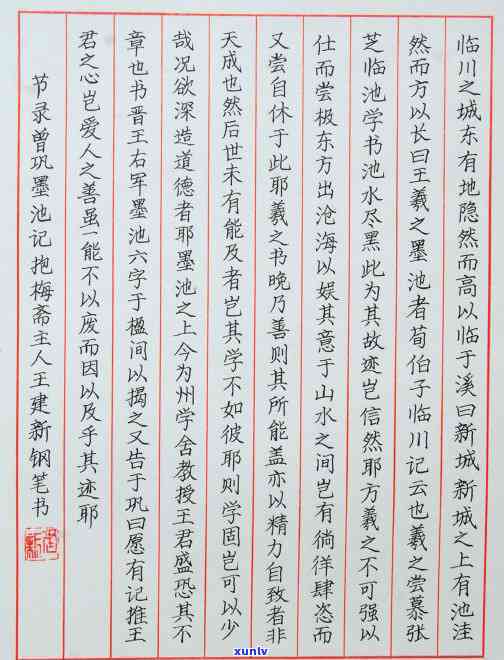 临川之城东有地隐然而高以临于溪曰新城新城之上有池洼
然而方以长曰王羲之墨池者荀伯子临川记云也羲之尝慕张
芝临池学书池水尽黑此为其故迹岂信然耶方羲之不可强以
仕而尝极东方出沧海以娱其意于山水之间岂有徜徉肆恣而
又尝自休于此耶羲之书晚乃善则其所能盖亦以精力自致者非
天成也然后世未有能及者岂其学不如彼耶则学固岂可以少
哉况欲深造道德者耶墨池之上今为州学舍教授王君盛恐其不
章也书晋王右军墨池六字于楹间以揭之又告于巩曰愿有记推王
君之心岂爱人之善虽一能不以废而因以及乎其迹耶
节录曾巩墨池记抱梅斋主人王建新钢笔书
建新
xunlv